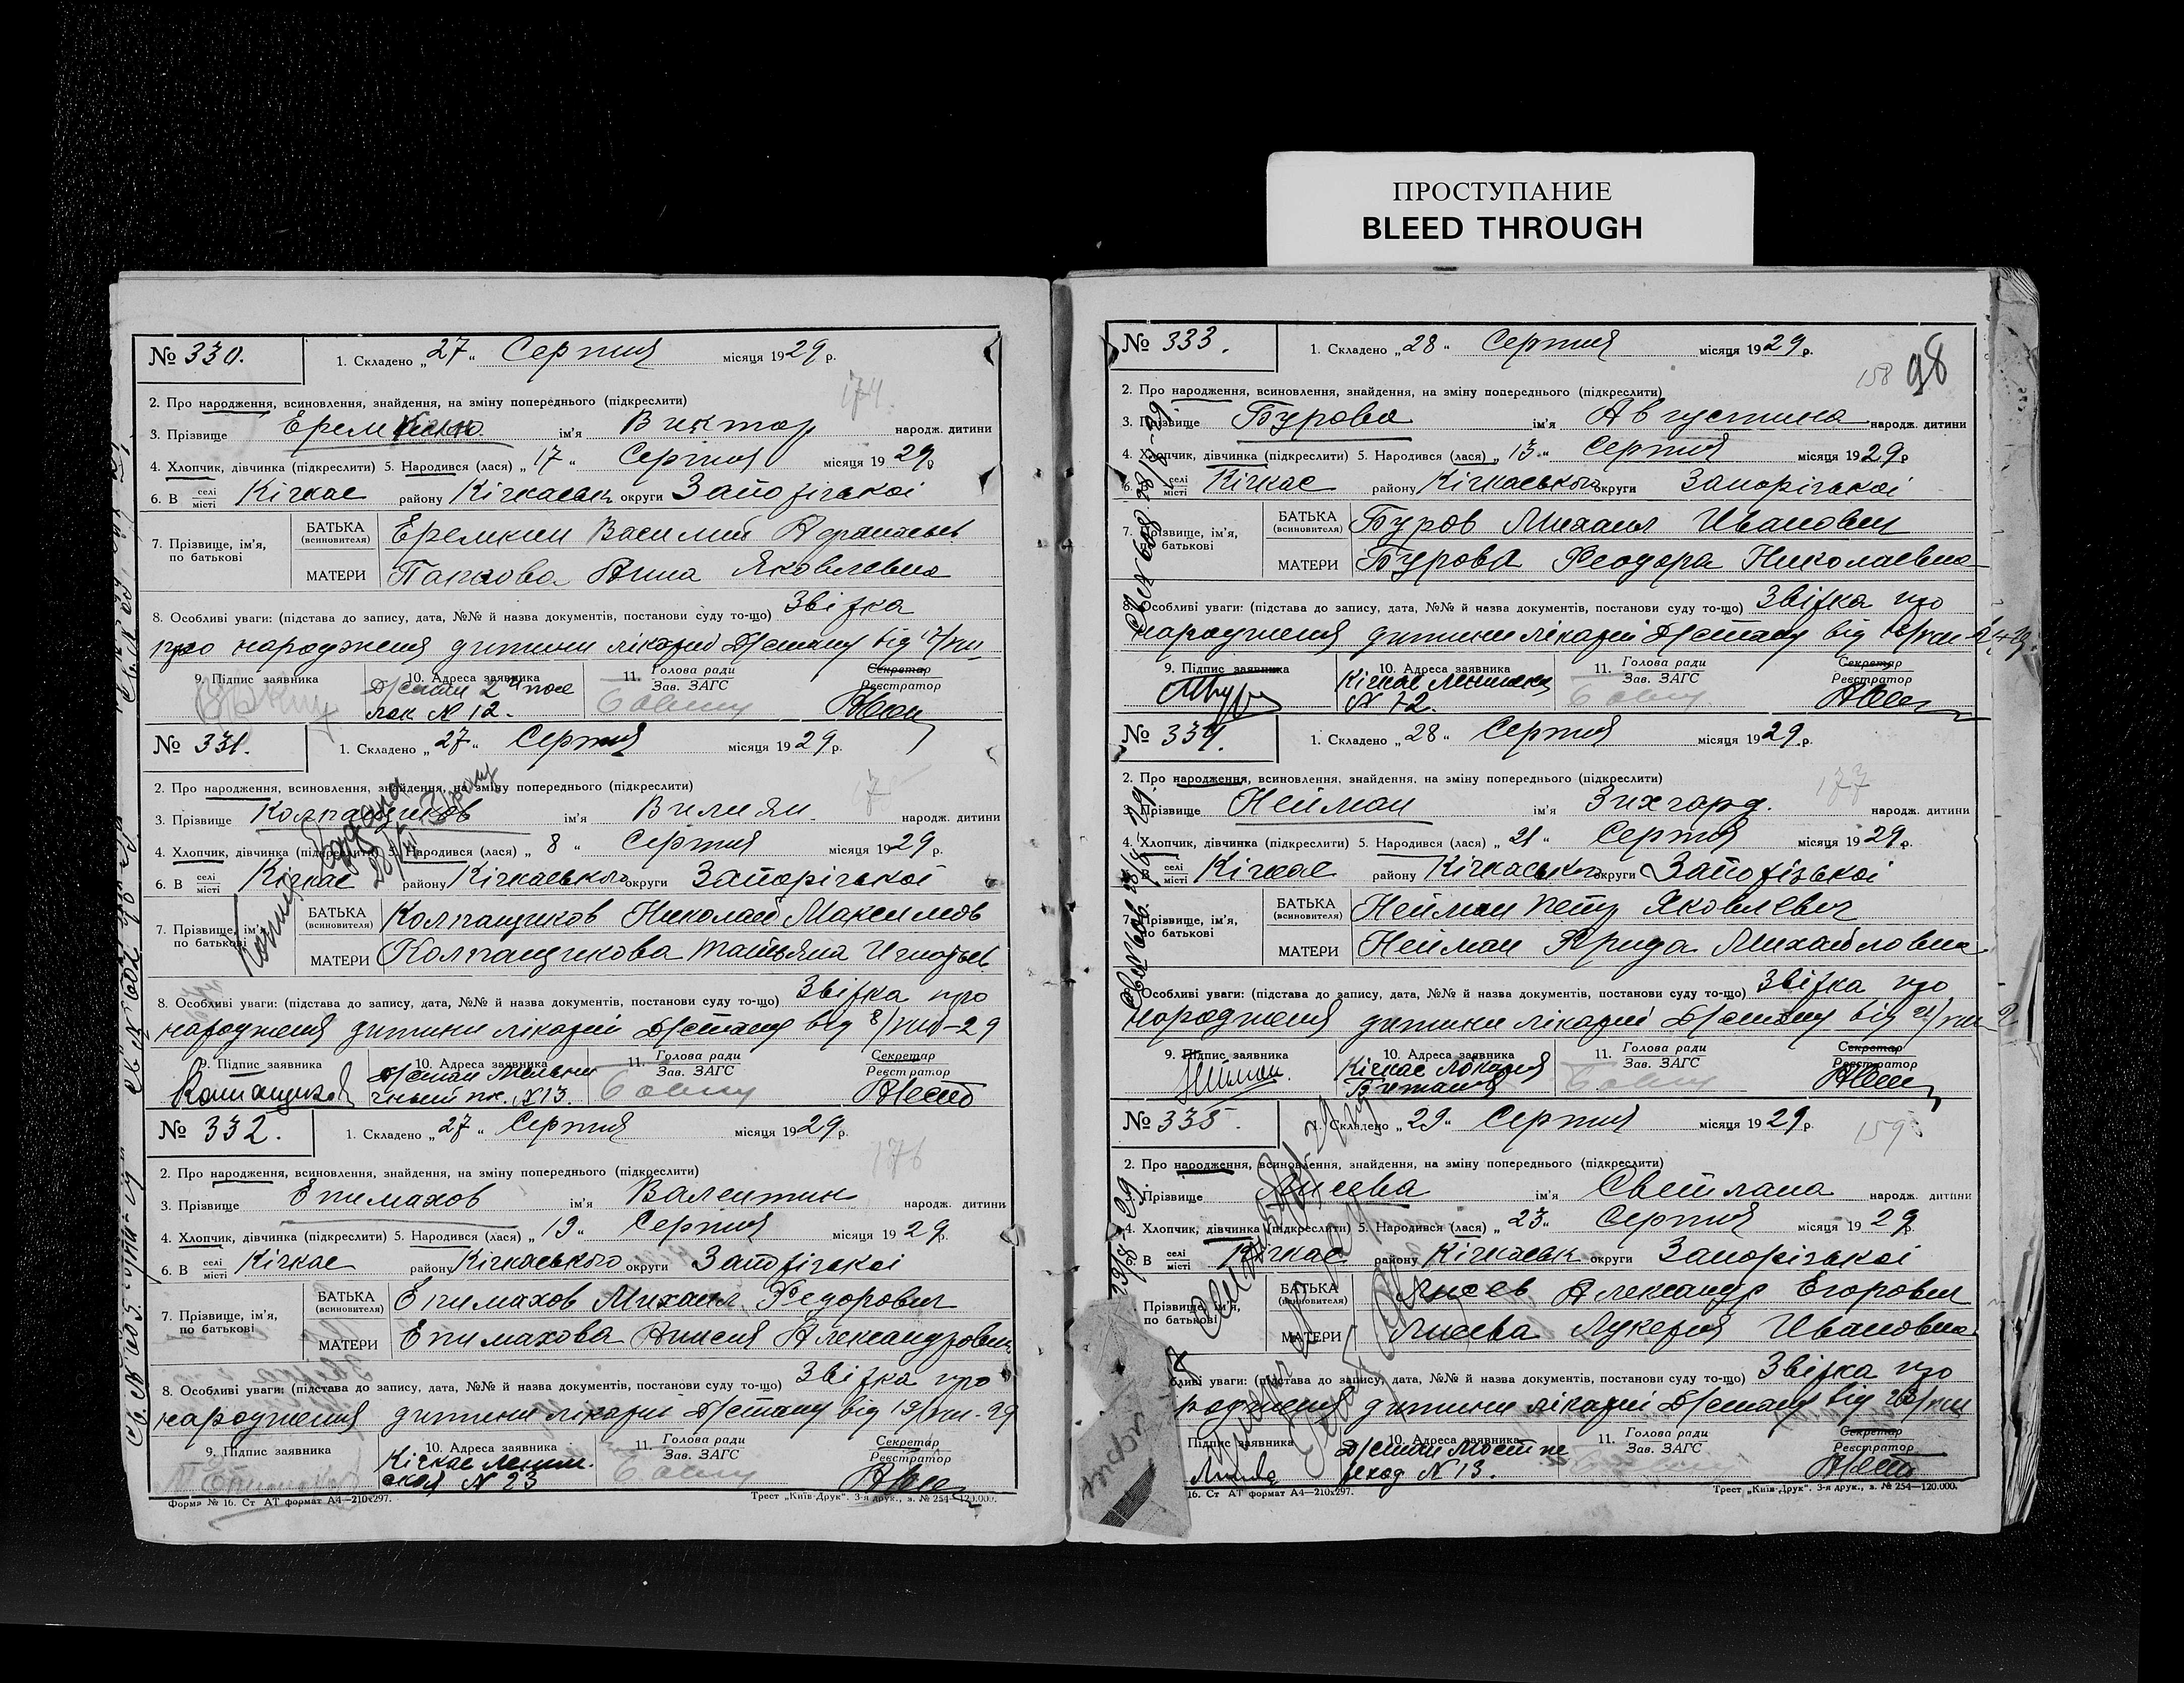 ПРОСТУПАНИЕ
BLEED THROUGH
№ 330. 1. Складено „27“ Серпня місяця 1929 р.
174
2. Про народження, всиновлення, знайдення, на зміну попереднього (підкреслити)
3. Прізвище Еремкин ім'я Виктор народж. дитини
4. Хлопчик, дівчинка (підкреслити) 5. Народився (лася) „17“ Серпня місяця 1929 р.
6. В селі місті Кічкас району Кічкаськ округи Запорізькоі
7. Прізвище, ім'я, по батькові
БАТЬКА (всиновителя) Еремкин Василий Афанасьев
МАТЕРИ Папкова Анна Яковлевна
8. Особливі уваги: (підстава до запису, дата, №№ й назва документів, постанови суду то-що) Звізка
про народження дитини лікарні Дн/стану від 17/VIII
9. Підпис заявника 10. Адреса заявника 11. Голова ради Зав. ЗАГС Секретар Реєстратор
Дн/стан 2й посе
лок № 12.
№ 331. 1. Складено „27“ Серпня місяця 1929 р.
2. Про народження, всиновлення, знайдення, на зміну попереднього (підкреслити)
3. Прізвище Колпащиков ім'я Вилиян народж. дитини
4. Хлопчик, дівчинка (підкреслити) 5. Народився (лася) „8“ Серпня місяця 1929 р.
6. В селі місті Кічкас району Кічкаського округи Запорізькоі
7. Прізвище, ім'я, по батькові
БАТЬКА (всиновителя) Колпащиков Николай Максимов
МАТЕРИ Колпащикова Татьяна Игнатьев
8. Особливі уваги: (підстава до запису, дата, №№ й назва документів, постанови суду то-що) Звізка про
народження дитини лікарні Дн/стану від 8/VIII-29
9. Підпис заявника 10. Адреса заявника 11. Голова ради Зав. ЗАГС Секретар Реєстратор
Колпащиков
№ 13.
№ 332. 1. Складено „27“ Серпня місяця 1929 р.
176
2. Про народження, всиновлення, знайдення, на зміну попереднього (підкреслити)
3. Прізвище Епимахов ім'я Валентин народж. дитини
4. Хлопчик, дівчинка (підкреслити) 5. Народився (лася) „19“ Серпня місяця 1929 р.
6. В селі місті Кічкас району Кічкаського округи Запорізькоі
7. Прізвище, ім'я, по батькові
БАТЬКА (всиновителя) Епимахов Михаил Федорович
МАТЕРИ Епимахова Анисия Александровн
8. Особливі уваги: (підстава до запису, дата, №№ й назва документів, постанови суду то-що) Звізка про
народження дитини лікарні Дн/стану від 19/VIII-29
9. Підпис заявника 10. Адреса заявника 11. Голова ради Зав. ЗАГС Секретар Реєстратор
Кічкас Ленин
ская № 23
Форма № 16. Ст АТ формат А4—210х297. Трест „Київ-Друк“. 3-я друк., з. № 254—120.000.
№ 333. 1. Складено „28“ Серпня місяця 1929 р.
158 98
2. Про народження, всиновлення, знайдення, на зміну попереднього (підкреслити)
3. Прізвище Бурова ім'я Августина народж. дитини
4. Хлопчик, дівчинка (підкреслити) 5. Народився (лася) „13“ Серпня місяця 1929 р
6. В селі місті Кічкас району Кічкаського округи Запорізькоі
7. Прізвище, ім'я, по батькові
БАТЬКА (всиновителя) Буров Михаил Иванович
МАТЕРИ Бурова Феодора Николаевна
8. Особливі уваги: (підстава до запису, дата, №№ й назва документів, постанови суду то-що) Звізка про
народження дитини лікарні Дн/стану від
9. Підпис заявника 10. Адреса заявника 11. Голова ради Зав. ЗАГС Секретар Реєстратор
Кічкас Ленинска
№ 72.
№ 334. 1. Складено „28“ Серпня місяця 1929 р.
177
2. Про народження, всиновлення, знайдення, на зміну попереднього (підкреслити)
3. Прізвище Нейман ім'я Зихгард. народж. дитини
4. Хлопчик, дівчинка (підкреслити) 5. Народився (лася) „21“ Серпня місяця 1929 р.
6. В селі місті Кічкас району Кічкаського округи Запорізькоі
7. Прізвище, ім'я, по батькові
БАТЬКА (всиновителя) Нейман Петр Яковлевич
МАТЕРИ Нейман Фрида Михайловна
8. Особливі уваги: (підстава до запису, дата, №№ й назва документів, постанови суду то-що) Звізка про
народження дитини лікарні Дн/стану від 21/VIII
9. Підпис заявника 10. Адреса заявника 11. Голова ради Зав. ЗАГС Секретар Реєстратор
Нейман. Кічкас Лікарня
№ 335. 1. Складено „29“ Серпня місяця 1929 р.
159
2. Про народження, всиновлення, знайдення, на зміну попереднього (підкреслити)
3. Прізвище Лисева ім'я Светлана народж. дитини
4. Хлопчик, дівчинка (підкреслити) 5. Народився (лася) „23“ Серпня місяця 1929 р.
6. В селі місті Кічкас району Кічкаськ округи Запорізькоі
Прізвище, ім'я, по батькові
БАТЬКА (всиновителя) Лисев Александр Егорович
МАТЕРИ Лисева Лукерия Ивановна
бливі уваги: (підстава до запису, дата, №№ й назва документів, постанови суду то-що) Звізка про
родження дитини лікарні Дн/стану від 23/VIII
Підпис заявника 10. Адреса заявника 11. Голова ради Зав. ЗАГС Секретар Реєстратор
№ 13.
16. Ст АТ формат А4—210х297. Трест „Київ-Друк“. 3-я друк., з. № 254—120.000.